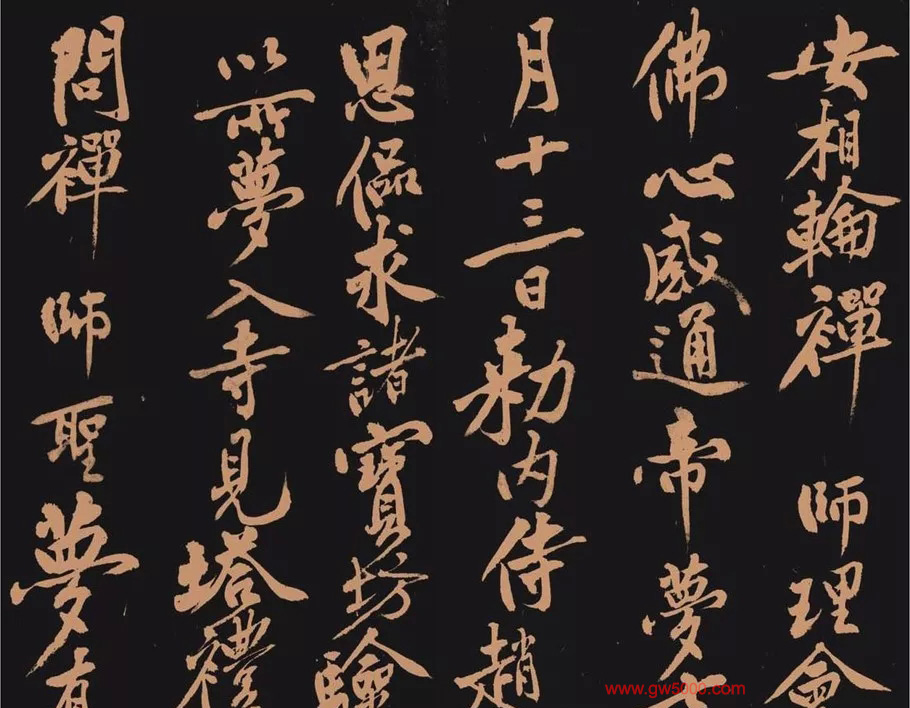 安相輪禪師理會
佛心感通帝夢七
月十三日勅内侍趙
思偘求諸寶坊驗
以所夢入寺見塔禮
問禪師聖夢有
www.gw5000.com